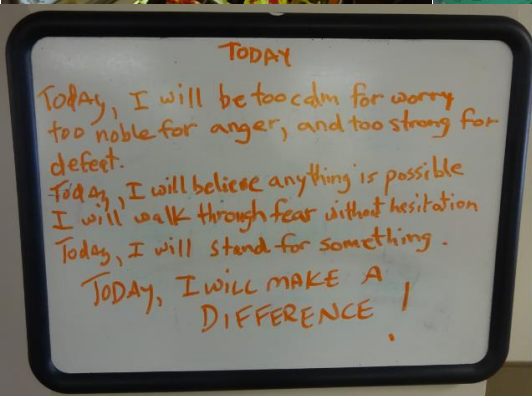 TODAY
Today, I will be too calm for worry
too noble for anger, and too strong for
defeat.
Today, I will believe anything is possible
I will walk through fear without hesitation
Today, I will stand for something.
TODAY, I WILL MAKE A
DIFFERENCE!